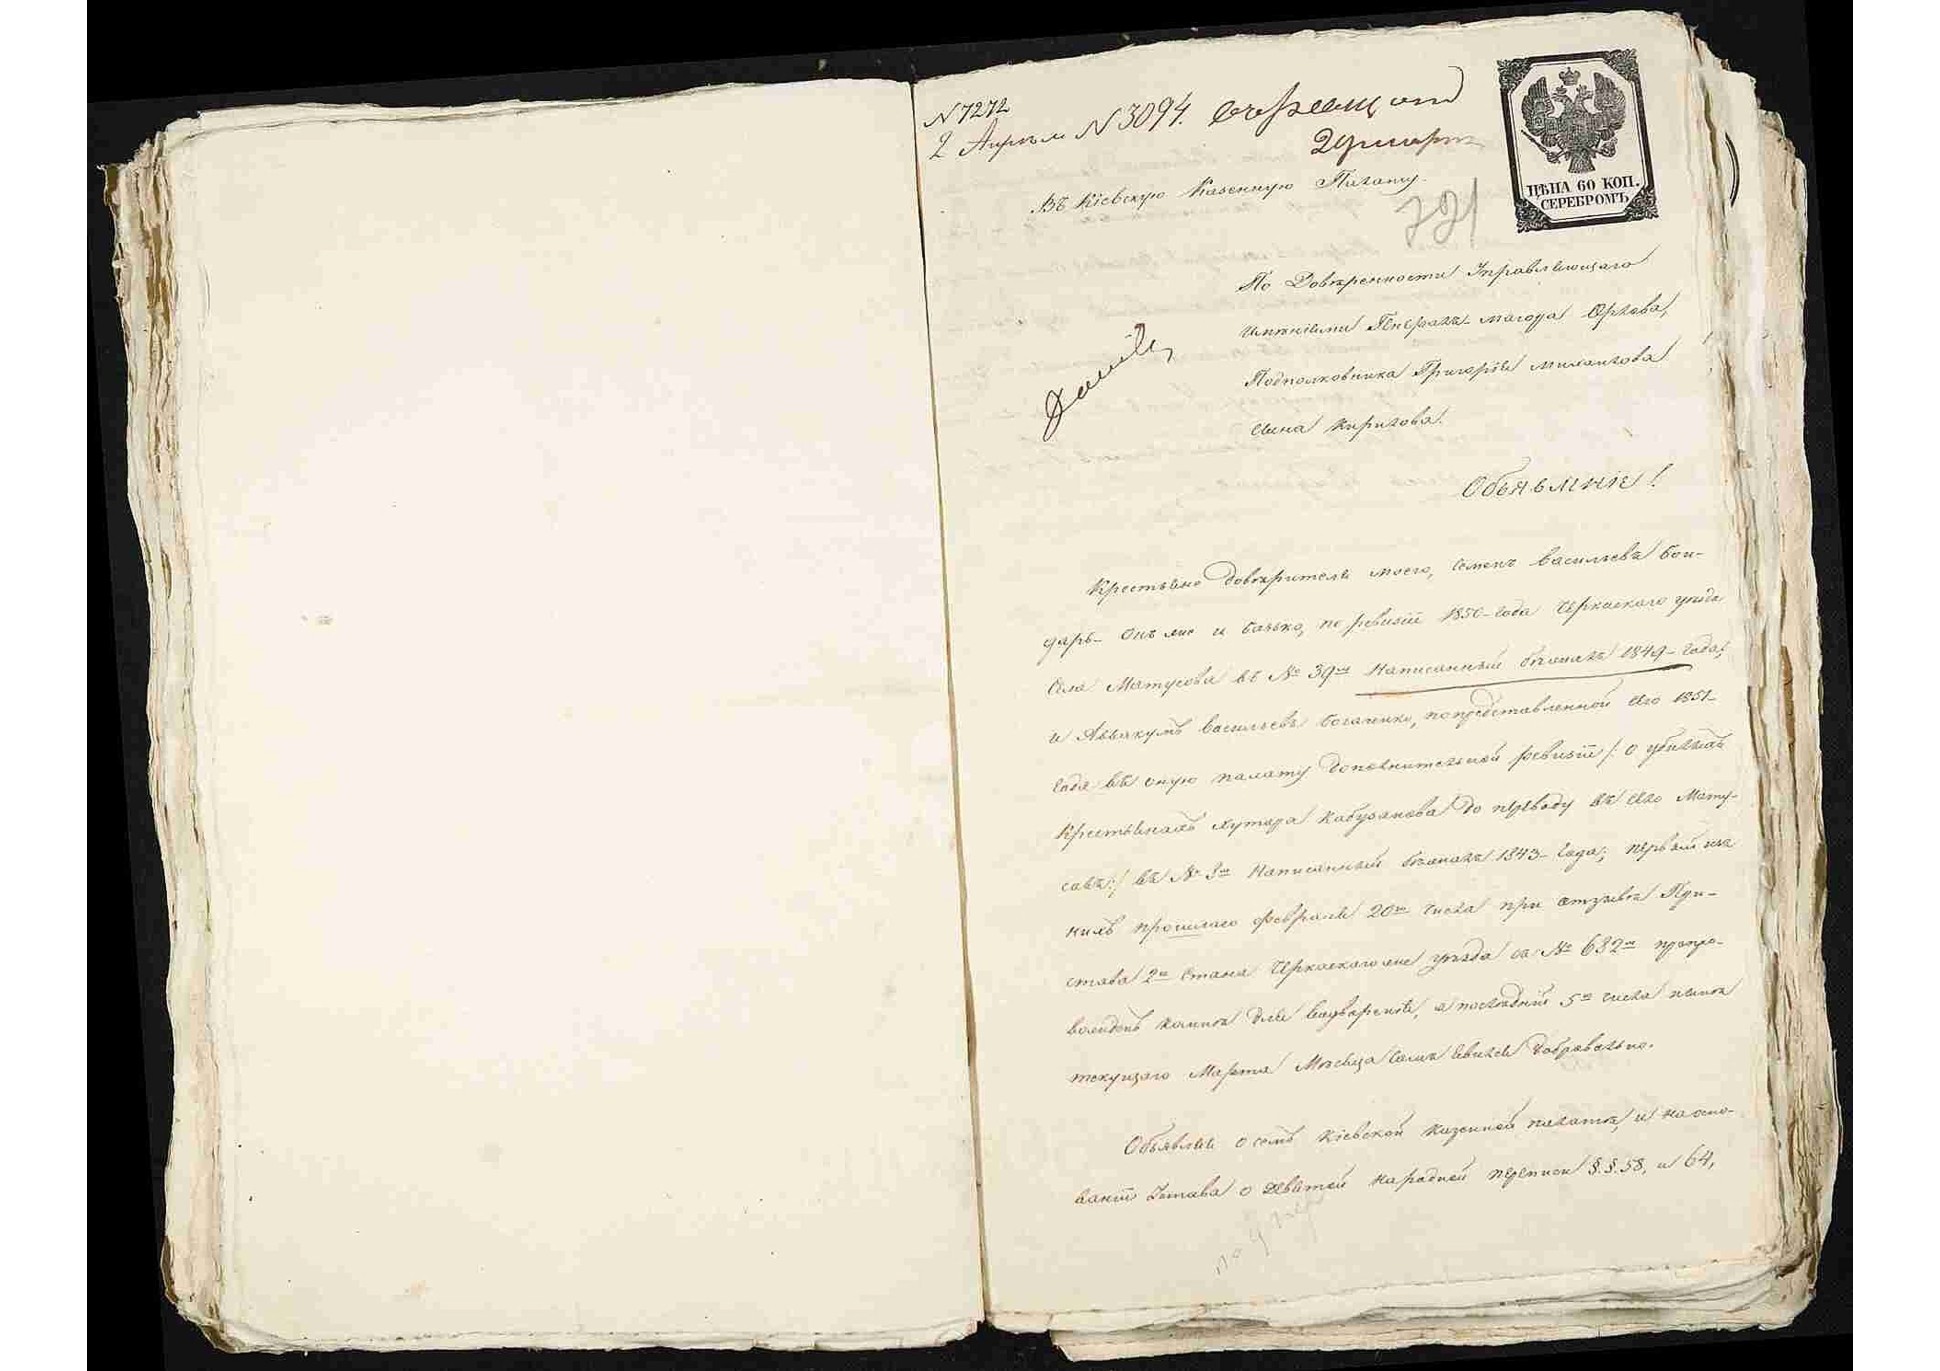 N 7272
2 Апрѣля N 3094.
29 марта
721
ЦѢНА 60 КОП.
СЕРЕБРОМЪ
Въ Кіевскую Казенную Палату.
По Довѣренности Управляющаго
имѣніями Генералъ-маіора Орлова,
Подполковника Григорія Михаилова
сина Кирилова.
Объявленіе!
Крестьяне довѣрителя моего, Семенъ Васильевъ Бон-
дарь- онъ же и Бачько, по ревизіи 1850-года Черкаскаго уѣзда
Села Матусова въ № 39м Написанный бѣжалъ 1849-года;
и Аввакумъ Васильевъ Богаченко, по представленной его 1851-
года въ оную палату дополнительной ревизіи /: о убилыхъ
Крестьянахъ хутора Кабузанова до переводу въ Село Мату-
савъ:/ въ № 3м Написанный бѣжалъ 1843-года; первый изъ
нихъ прошлаго февраля 20го числа при отзывѣ При-
става 2го Стана Черкаскаго же уѣзда за № 632м препро-
вожденъ ко мнѣ для водворенія, а послѣдній 5го числа мѣсяца
текущаго Марта Мѣсяца самъ явился добровольно.
Объявляя о семъ Кіевской Казенной палатѣ, и на осно-
ваніи Устава о девятой народной переписи §.§. 58, и 64,